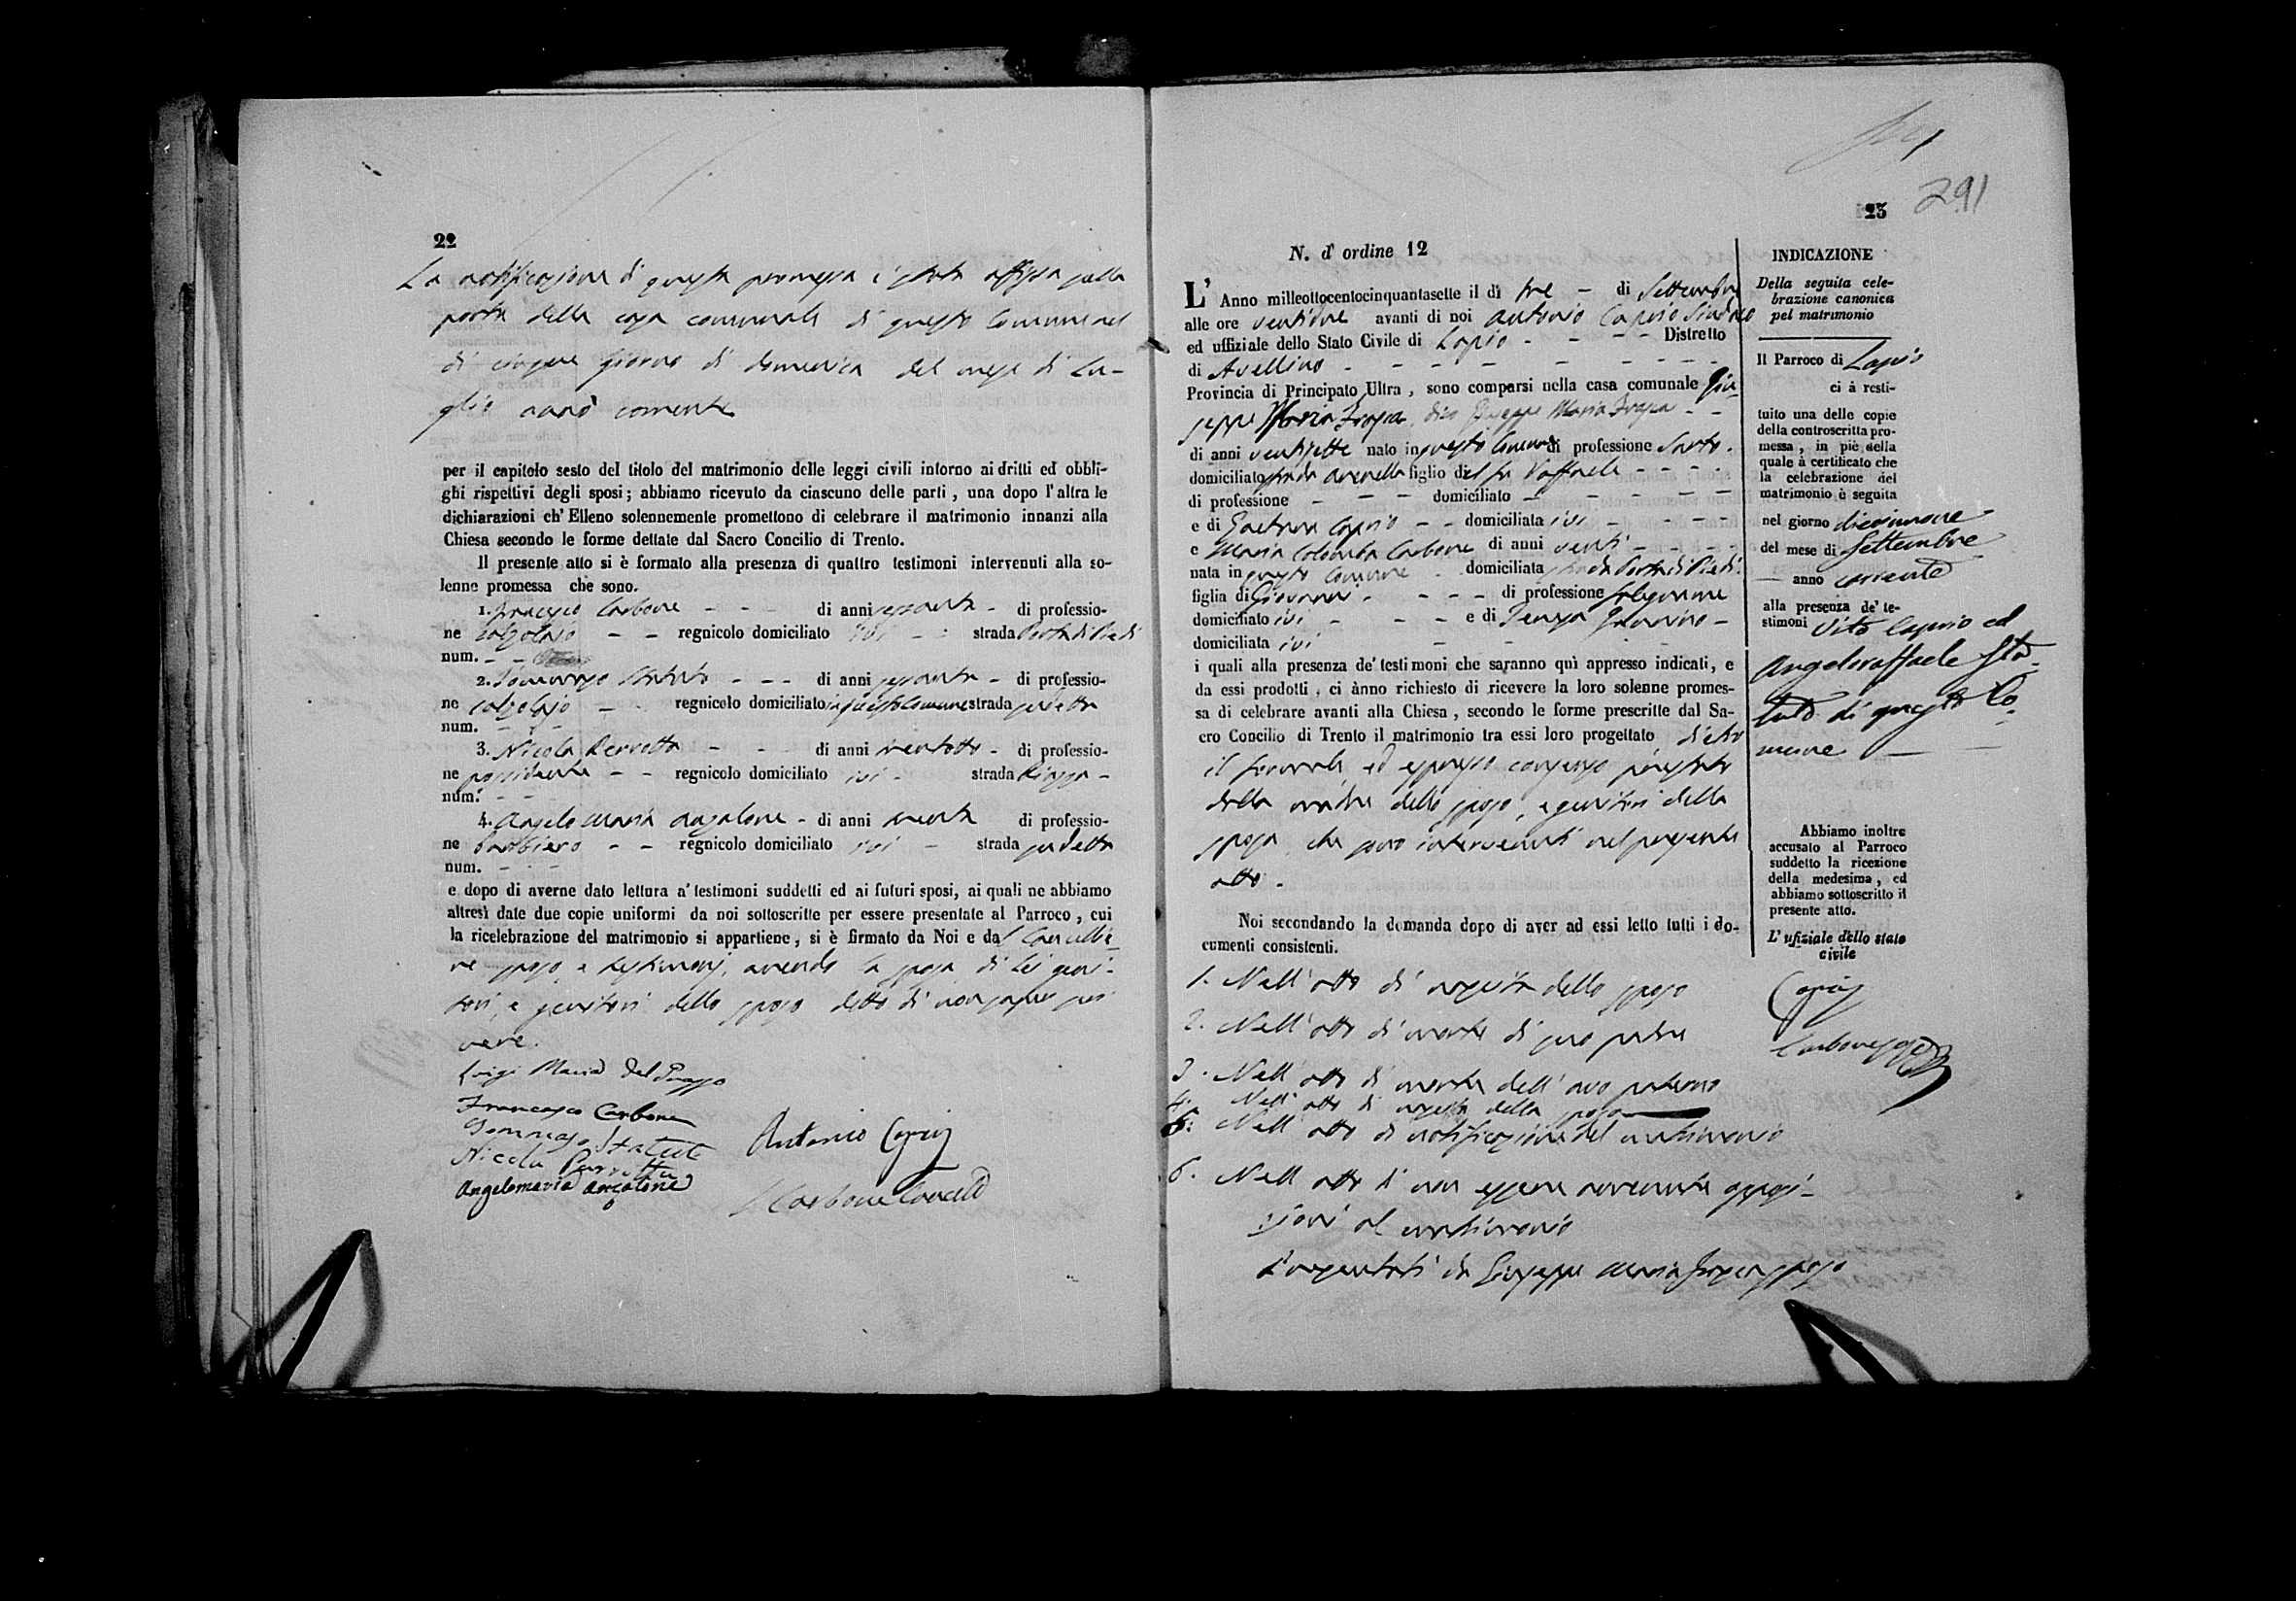 22
La notificazione di questa promessa è stata affissa sulla
porta della casa comunale di questo Comune nel
dì cinque giorno di domenica del mese di Lu-
glio anno corrente
per il capitolo sesto del titolo del matrimonio delle leggi civili intorno ai dritti ed obbli-
ghi rispettivi degli sposi; abbiamo ricevuto da ciascuno delle parti, una dopo l'altra le
dichiarazioni ch'Elleno solennemente promettono di celebrare il matrimonio innanzi alla
Chiesa secondo le forme dettate dal Sacro Concilio di Trento.
Il presente atto si è formato alla presenza di quattro testimoni intervenuti alla so-
lenne promessa che sono.
1. Francesco Carbone - - di anni sessanta - di professio-
ne calzolajo - - regnicolo domiciliato ivi - strada Porta di Piedi
num. - -
2. Tommaso Statuto - - - di anni sessanta - di professio-
ne calzolajo - regnicolo domiciliato in questo Comune strada sudetta
num. - -
3. Nicola Perrotta - - di anni trentotto - di professio-
ne possidente - - regnicolo domiciliato ivi - strada Piazza -
num. - -
4. Angelo Maria Anzalone - di anni trenta di professio-
ne barbiero - - regnicolo domiciliato ivi - strada sudetta
num. - -
e dopo di averne dato lettura a' testimoni suddetti ed ai futuri sposi, ai quali ne abbiamo
altresì date due copie uniformi da noi sottoscritte per essere presentate al Parroco, cui
la ricelebrazione del matrimonio si appartiene, si è firmato da Noi e dal Cancellie-
re sposo e testimonj, avendo la sposa di lei geni-
tori, e genitori dello sposo detto di non saper scri
vere.
Luigi Maria Del
Francesco Carbone
Tommaso Statuto
Antonio Caprio
Nicola Perrotta
Angelomaria Anzalone
Carbone Cancell
291
23
N. d' ordine 12
L' Anno millottocentocinquantasette il dì tre - di Settembre
alle ore ventidue avanti di noi Antonio Caprio Sindaco
ed uffiziale dello Stato Civile di Lapio - - - - Distretto
di Avellino - - - - - - - -
Provincia di Principato Ultra, sono comparsi nella casa comunale Giu-
seppe Maria dico Giuseppe Maria - -
di anni ventisette nato in questo Comune di professione Sarto -
domiciliato strada Arenella figlio del fu Raffaele - - - -
di professione - - - domiciliato - - - - - -
e di Gaetana Caprio - - domiciliata ivi - - - -
e Maria Colomba Carbone di anni venti - - - -
nata in questo Comune - domiciliata strada Porta di Piedi -
figlia di Giovanni - - - - di professione falegname
domiciliato ivi - - - e di Teresa -
domiciliata ivi - - -
i quali alla presenza de' testimoni che saranno quì appresso indicati, e
da essi prodotti, ci ànno richiesto di ricevere la loro solenne promes-
sa di celebrare avanti alla Chiesa, secondo le forme prescritte dal Sa-
cro Concilio di Trento il matrimonio tra essi loro progettato dietro
il formale ed espresso consenso prestato
dalla madre dello sposo, e genitori della
sposa che sono intervenuti nel presente
atto -
Noi secondando la domanda dopo di aver ad essi letto tutti i do-
cumenti consistenti.
1. Nell'atto di nascita dello sposo
2. Nell'atto di morte di suo padre
3. Nell'atto di morte dell'avo paterno
4. Nell'atto di nascita della sposa
5. Nell'atto di notificazione del matrimonio
6. Nell'atto di non essere avvenuta opposi-
zioni al matrimonio
da Giuseppe Maria sposo
INDICAZIONE
Della seguita cele-
brazione canonica
pel matrimonio
Il Parroco di Lapio
ci à resti-
tuito una delle copie
della controscritta pro-
messa, in piè della
quale à certificato che
la celebrazione del
matrimonio è seguita
nel giorno diecinnove
del mese di Settembre
- anno corrente
alla presenza de' te-
stimoni Vito Caprio ed
Angeloraffaele Sta-
tuto di questo Co-
mune
Abbiamo inoltre
accusato al Parroco
suddetto la ricezione
della medesima, ed
abbiamo sottoscritto il
presente atto.
L'ufiziale dello stato
civile
Caprio